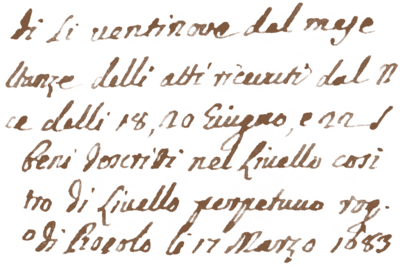 di li ventinove del mese
ltanze delli atti ricevuti dal N
ce delli 18, 20 Giugno, e 22 S
beni descritti nel Livello cosi
tro di Livello perpetuo rog.
di Procolo li 17 Marzo 1683